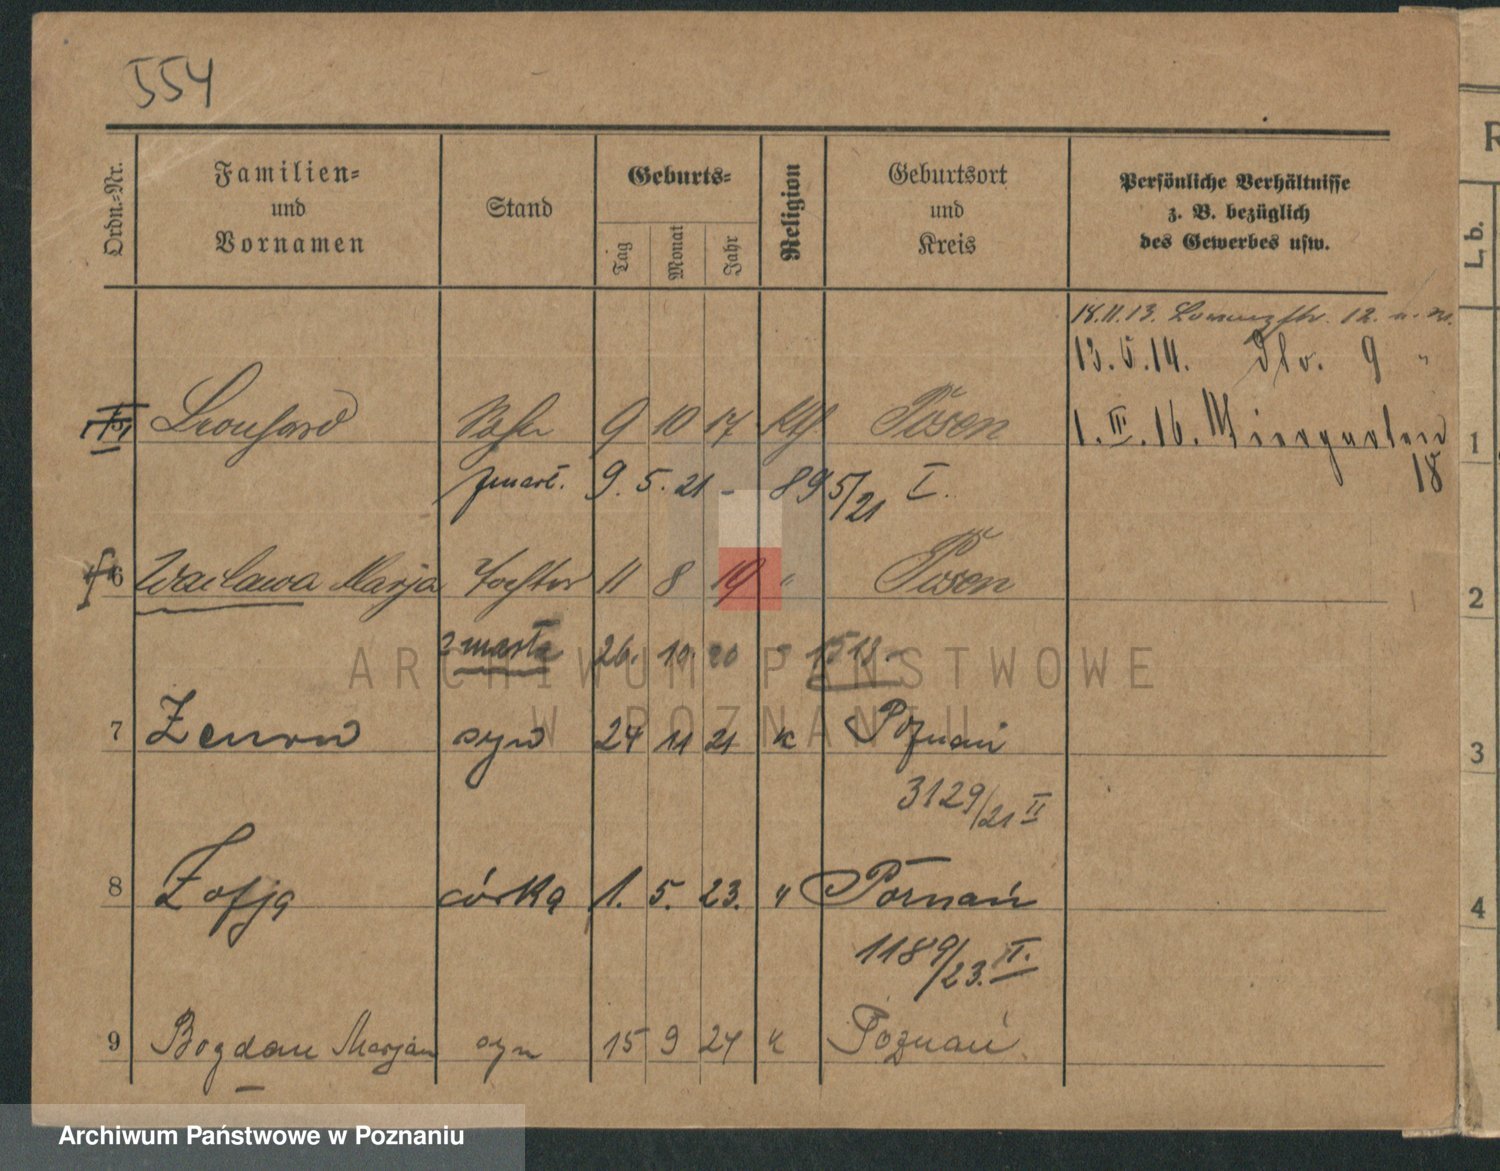 554
Ordn.-Nr.
Familien- und Vornamen
Stand
Geburts-
Tag
Monat
Jahr
Religion
Geburtsort und Kreis
Persönliche Verhältnisse z. B. bezüglich des Gewerbes usw.
18.11.13. str. 12.
13.5.14. 9 "
Leonhard Sohn 9 10 17 kth Posen 1. III. 16. Wiesengarten
18
zmarł. 9. 5. 21 - 895/21 I.
6 Wacława Marja Tochter 11 8 19 " Posen
zmarła 26. 10. 20 - 1513.
7 Zenon syn 24 11 21 k Poznań
3129/21 II
8 Zofja córka 1. 5. 23. " Poznań
1189/23. II.
9 Bogdan Marjan syn 15 9 24 k Poznań.
R
L, b.
1
2
3
4
ARCHIWUM PAŃSTWOWE
W POZNANIU
Archiwum Państwowe w Poznaniu